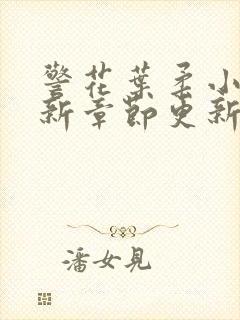 警花葉柔小
新章節更新
潘女見